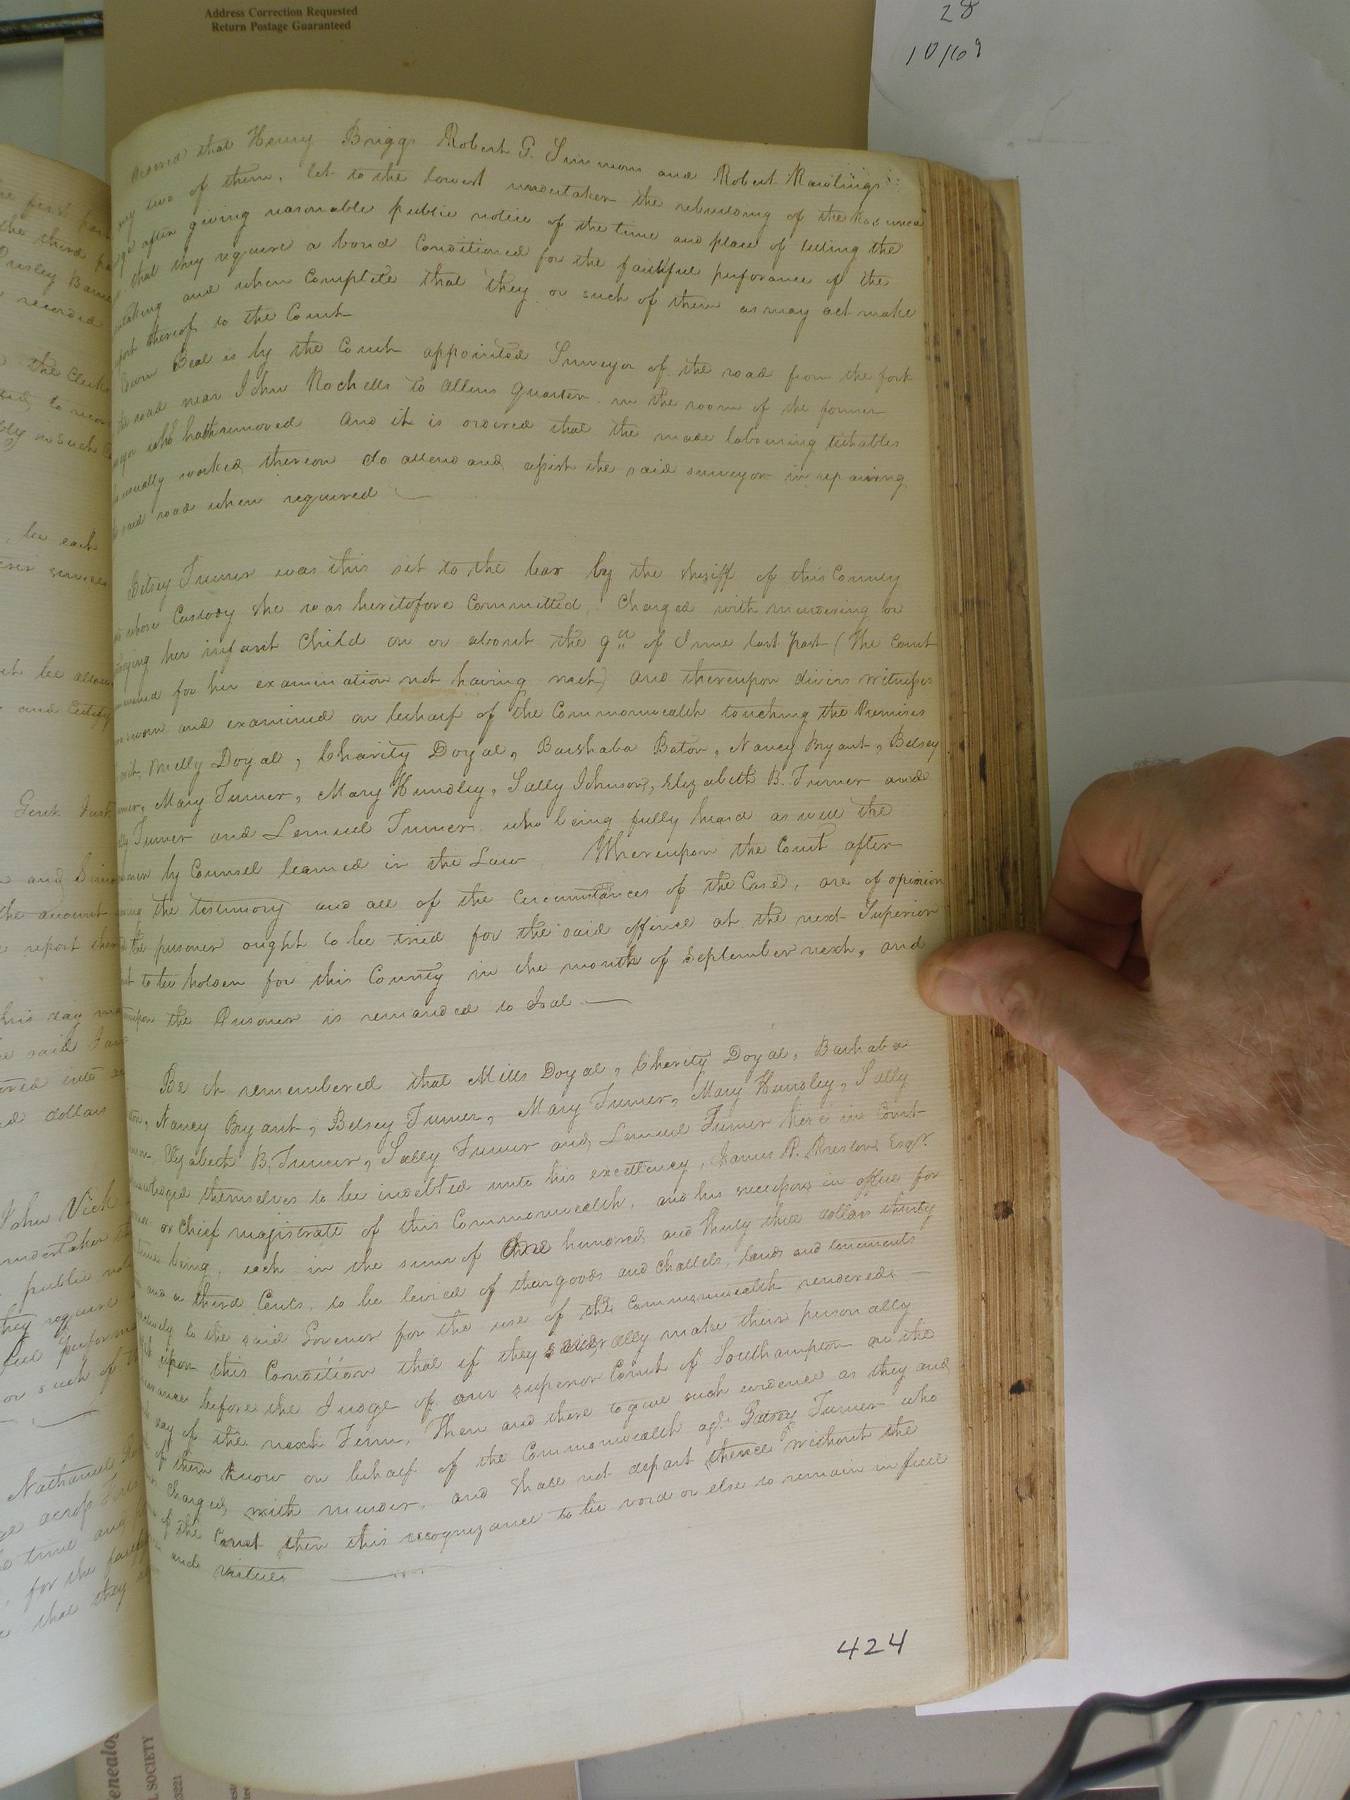 Address Correction Requested
Return Postage Guaranteed
28
10/109
that Henry Briggs Robert G. Simmons and Robert Rawlings
any two of them, let to the lowest undertaker the rebuilding of the
after giving reasonable public notice of the time and place of letting the
that they require a bond Conditioned for the faithful perforance of the
and when Complete that they or such of them as may act make
thereof to the Court
Beal is by the Court appointed Surveyor of the road from the fork
road near John Rochells to Allens quarter in the room of the former
who hath removed And it is ordered that the male labouring tithables
usually worked thereon do attend and assist the said surveyor in repairing
said road when required
Betsey Turner was this set to the bar by the sheriff of this County
whose Custody she was heretofore Committed, Charged with murdering or
her infant Child on or about the 9th of June last past (the Court
for her examination not having met) and thereupon divers witnesses
sworn and examined on behalf of the Commonwealth touching the Premises
Milly Doyal, Charity Doyal, Barshaba Baton, Nancy Bryant, Betsey
Mary Turner, Mary Hundley, Sally Johnson, Elizabeth B. Turner and
Turner and Lemuel Turner who being fully heard as well the
by Counsel learned in the Law Whereupon the Court after
the testimony and all of the Circumstances of the Case, are of opinion
the prisoner ought to be tried for the said offence at the next Superior
to be holden for this County in the month of September next, and
the Prisoner is remanded to Jail
Be it remembered that Mills Doyal, Charity Doyal, Barshaba
Nancy Bryant, Betsey Turner, Mary Turner, Mary Hundley, Sally
Elizabeth B. Turner, Sally Turner and Lemuel Turner here in Court
themselves to be indebted unto his excellency, James P. Preston Esqr.
or chief magistrate of this Commonwealth, and his successors in office for
being, each in the sum of One hundred and thirty three dollars thirty
and a third Cents, to be levied of their goods and chattels, lands and tenements
to the said Govenor for the use of the Commonwealth rendered
upon this Condition that if they severally make their personally
before the Judge of our superior Court of Southampton on the
day of the next Term, Then and there to give such evidence as they and
of them know on behalf of the Commonwealth agt. Betsey Turner who
charged with murder, and shall not depart thence without the
of the Court then this recognizance to be void or else to remain in full
and virtue
424
the third
recorded
the Clerk
be each
be allow
Gent.
the amount
report
This day
said
dollars
John Vick
undertaker
public
they require
or such of
Nathaniel
time and
for the
that they
SOCIETY
3221